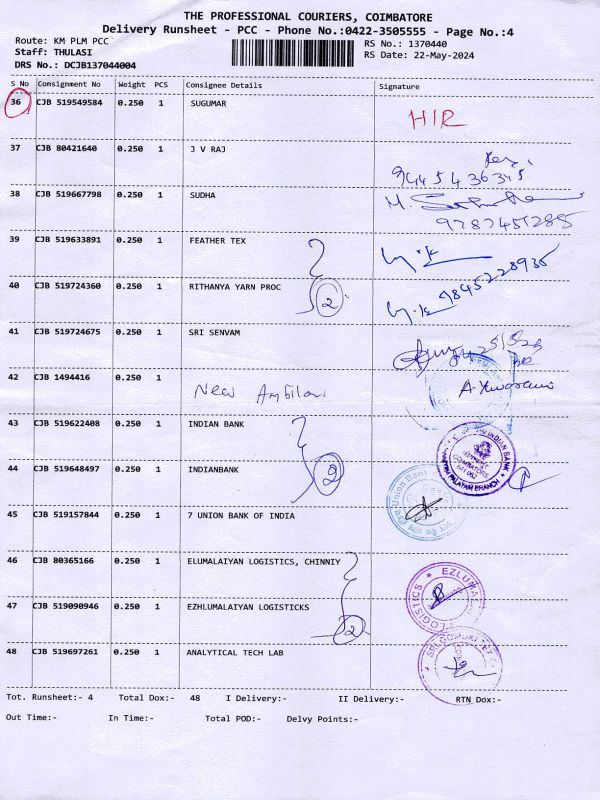 THE PROFESSIONAL COURIERS, COIMBATORE
Delivery Runsheet - PCC - Phone No.:0422-3505555 - Page No.:4
Route: KM PLM PCC
Staff: THULASI
DRS No.: DCJB137044004
RS No.: 1370440
RS Date: 22-May-2024
S No Consignment No Weight PCS Consignee Details Signature
36 CJB 519549584 0.250 1 SUGUMAR HIR
37 CJB 80421640 0.250 1 J V RAJ
9445436345
38 CJB 519667798 0.250 1 SUDHA
9787451285
39 CJB 519633891 0.250 1 FEATHER TEX
40 CJB 519724360 0.250 1 RITHANYA YARN PROC 2 9845228935
41 CJB 519724675 0.250 1 SRI SENVAM
42 CJB 1494416 0.250 1 New
43 CJB 519622408 0.250 1 INDIAN BANK
44 CJB 519648497 0.250 1 INDIANBANK 2
INDIAN BANK
COIMBATORE
PALAYAM BRANCH
Union Bank
45 CJB 519157844 0.250 1 7 UNION BANK OF INDIA
46 CJB 80365166 0.250 1 ELUMALAIYAN LOGISTICS, CHINNIY
47 CJB 519090946 0.250 1 EZHLUMALAIYAN LOGISTICKS 2
LOGISTICS
48 CJB 519697261 0.250 1 ANALYTICAL TECH LAB
Tot. Runsheet:- 4 Total Dox:- 48 I Delivery:- II Delivery:- RTN Dox:-
Out Time:- In Time:- Total POD:- Delvy Points:-